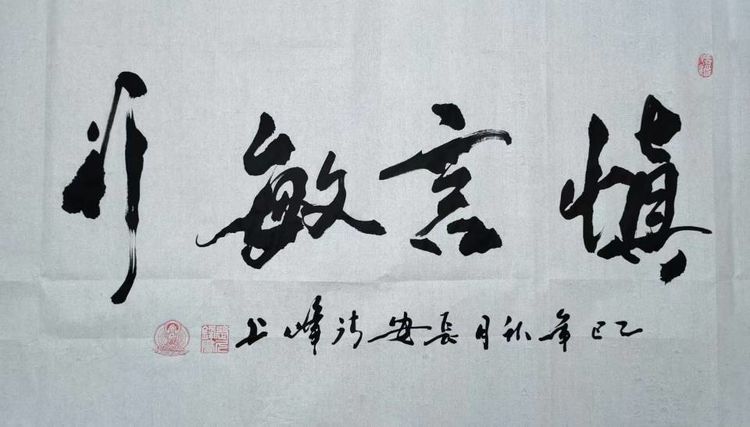 慎言敏行
乙巳年秋月長安峰书